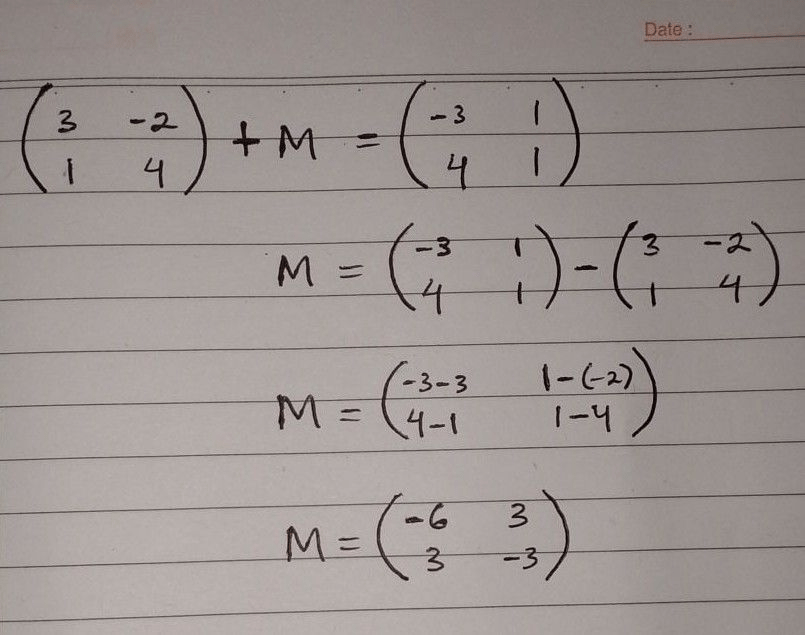 Date :
(3 -2
1 4) + M = (-3 1
4 1)
M = (-3 1
4 1) - (3 -2
1 4)
M = (-3-3 1-(-2)
4-1 1-4)
M = (-6 3
3 -3)